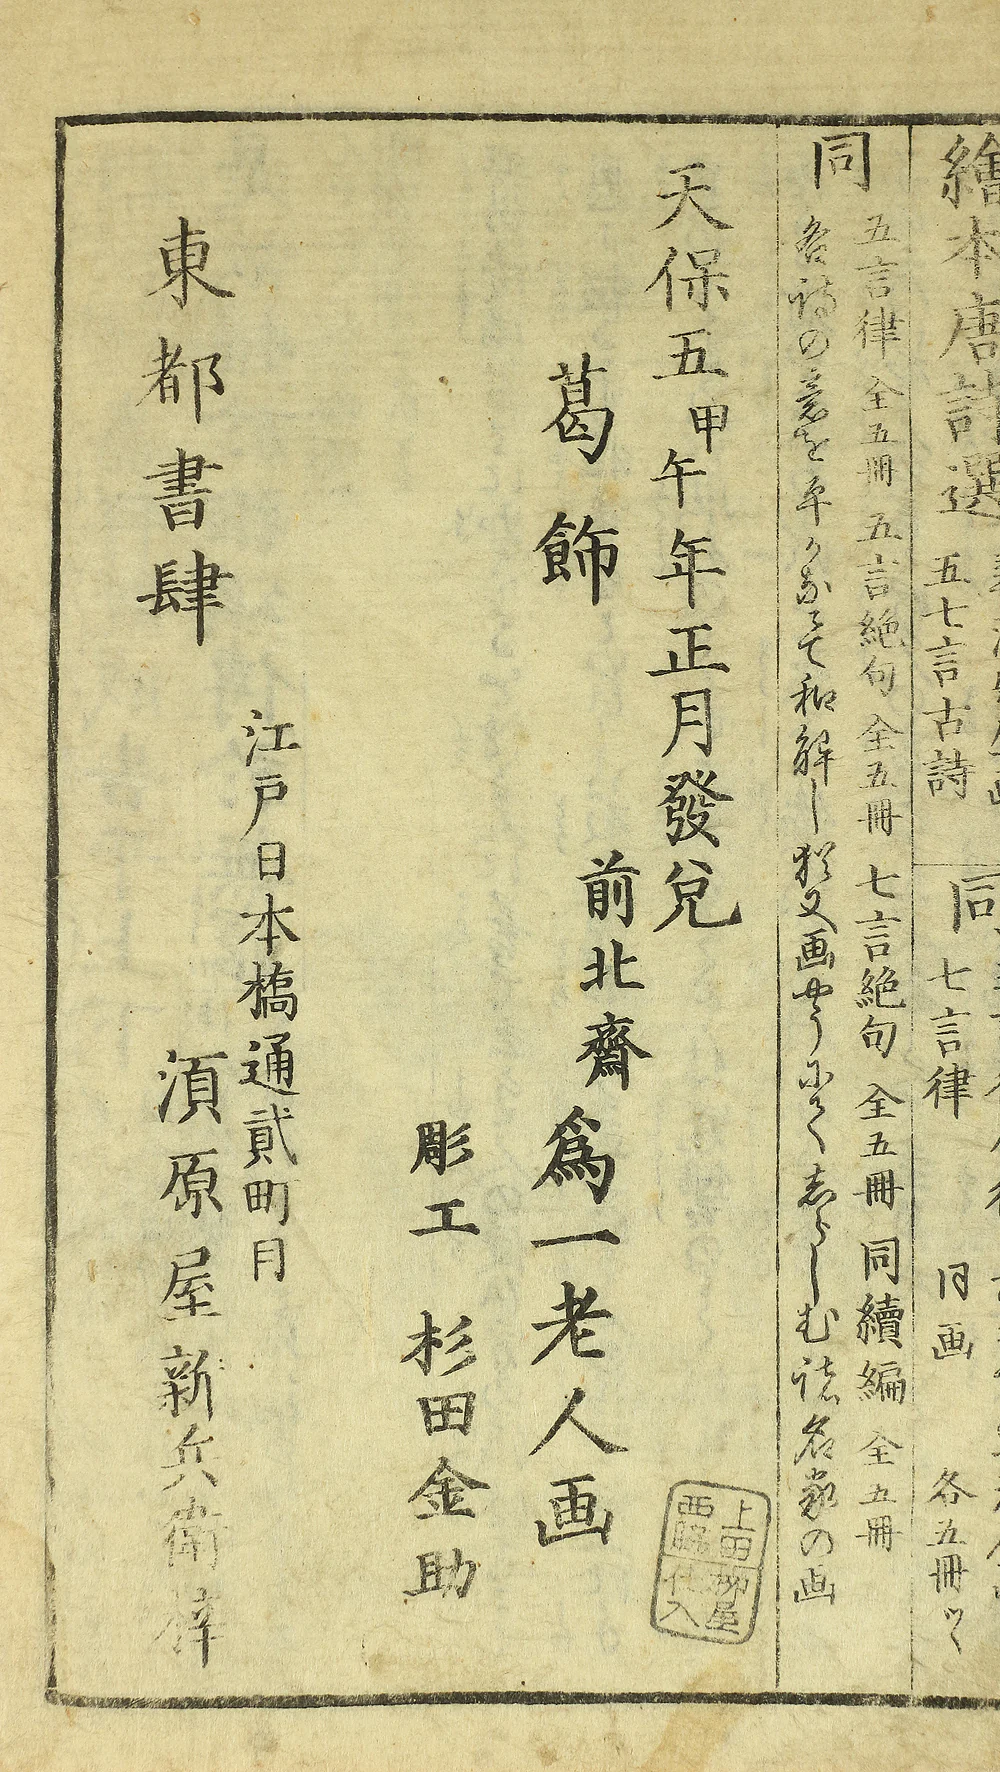 繪本唐詩選
五七言古詩
同
七言律
同画
各五冊ツヽ
同
五言律 全五冊 五言絶句 全五冊 七言絶句 全五冊 同續編 全五冊
各詩の意を平かなにて和解し猶又画やうにてしらしむ諸名家の画
天保五甲午年正月發兌
葛飾 前北齋爲一老人画
彫工 杉田金助
江戸日本橋通貳町月
東都書肆 湏原屋新兵衛梓
上田柳屋
西脇仕入